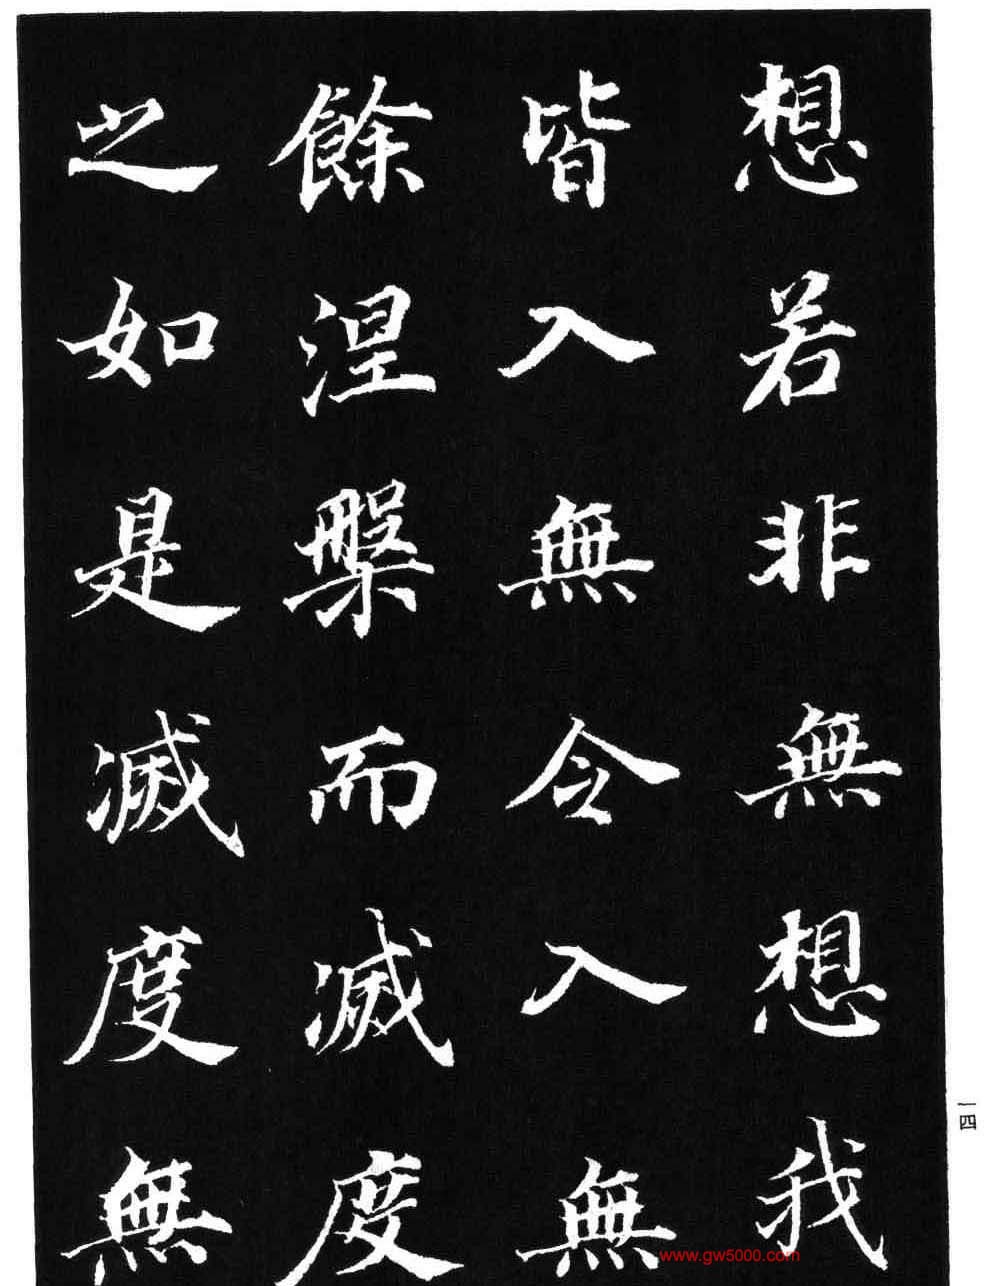 想若非無想我
皆入無令入無
餘涅槃而滅度
之如是滅度無
一四
www.gw5000.com